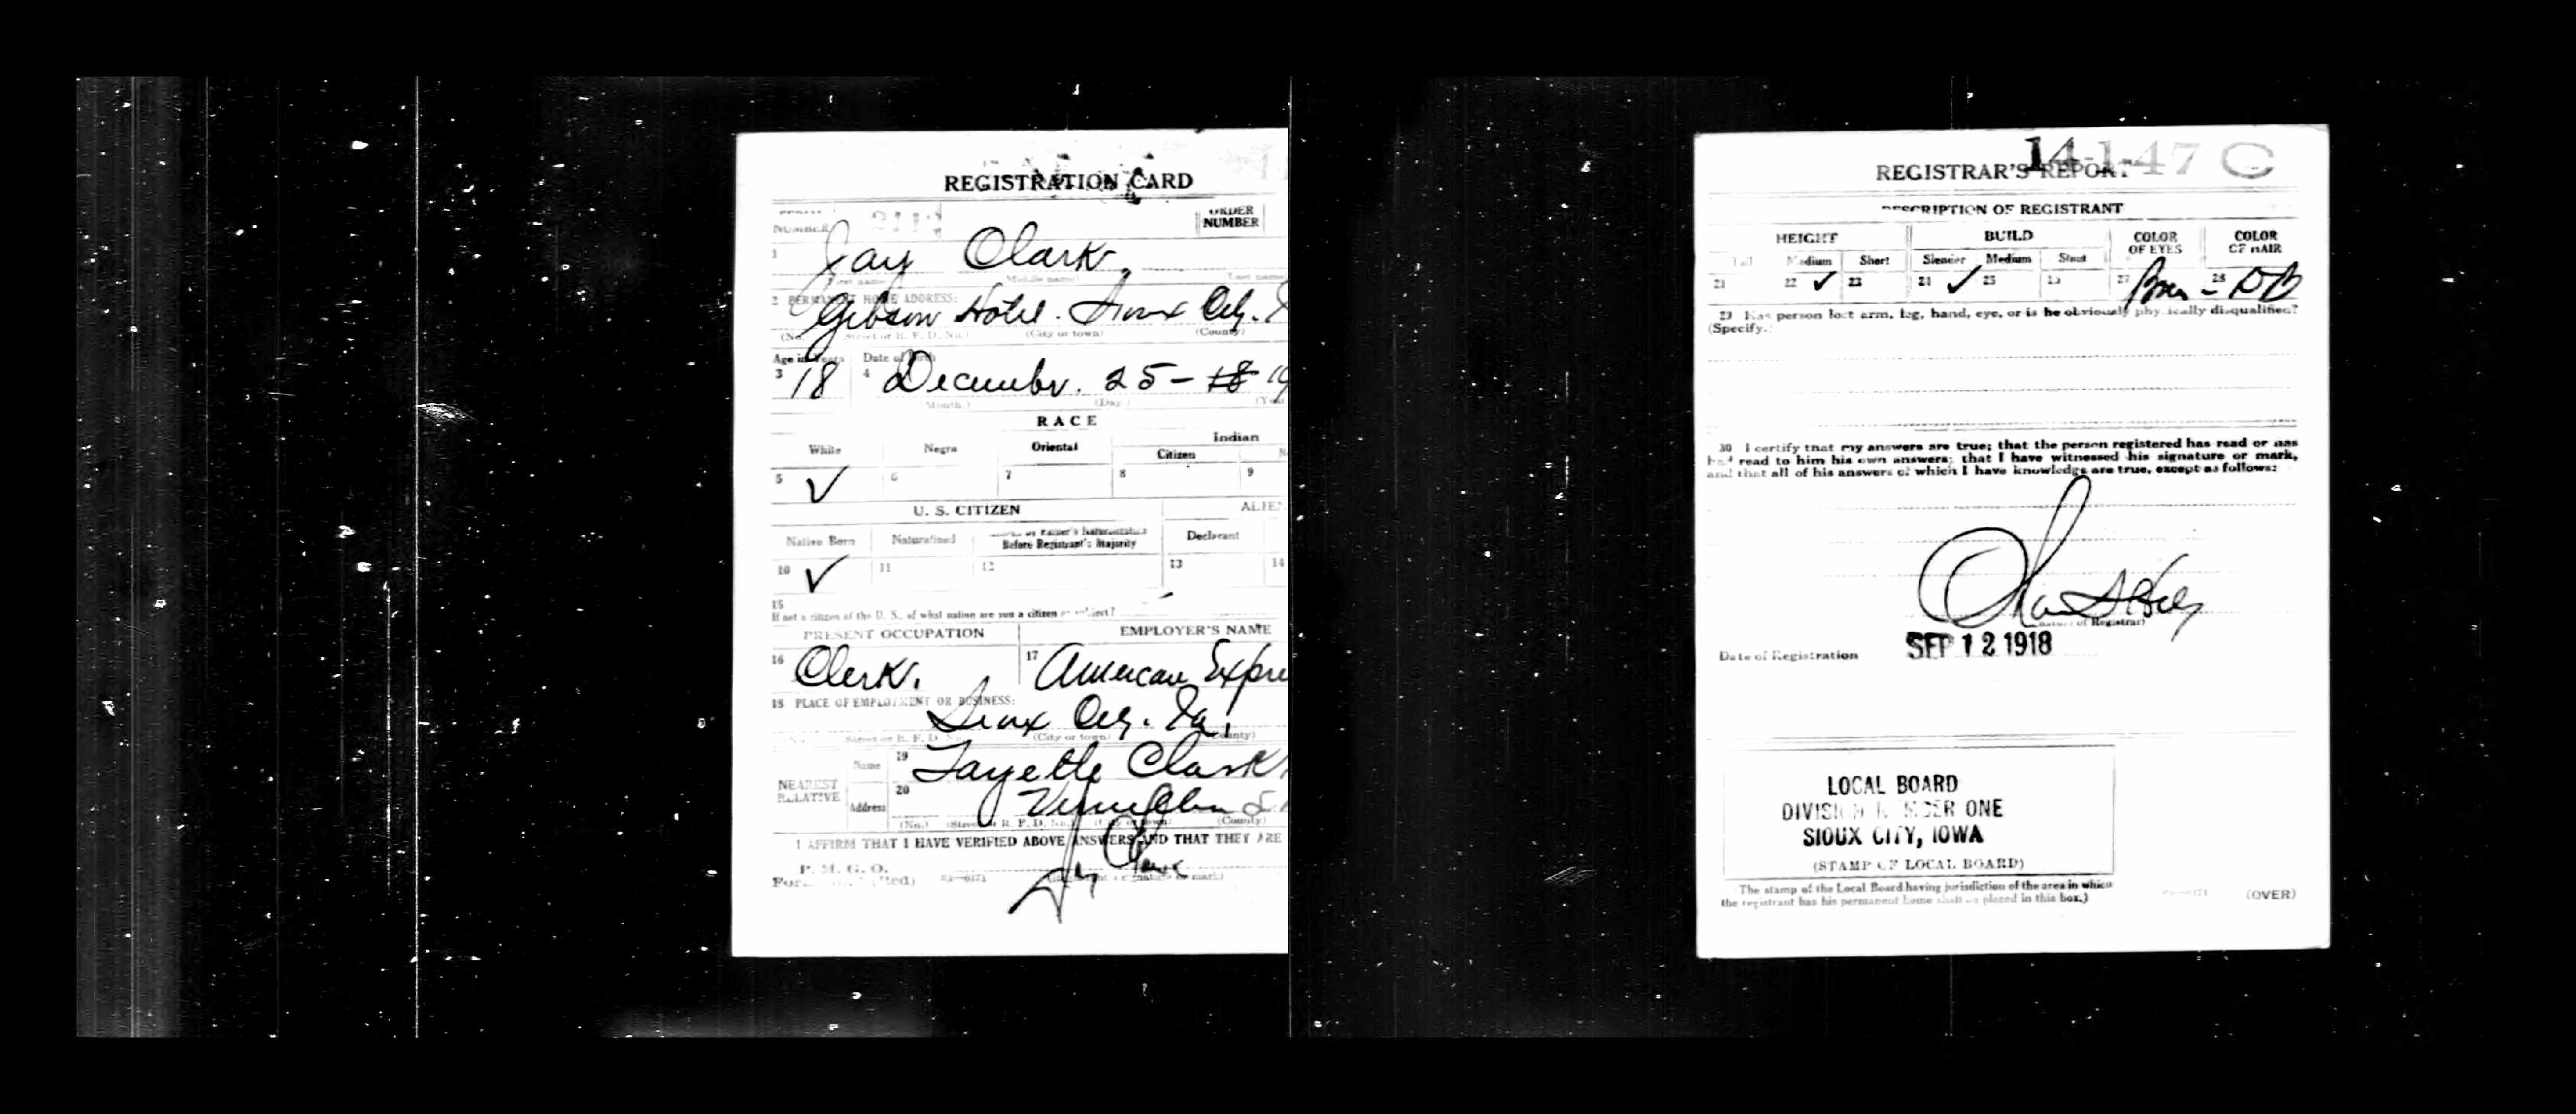 REGISTRATION CARD
NUMBER 211
ORDER NUMBER
1 Jay Clark
First name Middle name Last name
2 PERMANENT HOME ADDRESS:
Gibson Hotel. Sioux City.
(No. Street or R. F. D. No.) (City or town) (County)
Age in Years Date of Birth
3 18 4 December. 25 - 18 19
(Month.) (Day.)
RACE
White Negro Oriental Indian
Citizen
5 ✓ 6 7 8 9
U. S. CITIZEN ALIE
Native Born Naturalized Citizen by Father's Naturalization Before Registrant's Majority Declarant
10 ✓ 11 12 13 14
15
If not a citizen of the U. S., of what nation are you a citizen or subject?
PRESENT OCCUPATION EMPLOYER'S NAME
16 Clerk. 17 American Expre
18 PLACE OF EMPLOYMENT OR BUSINESS:
Sioux City. Ia.
Street or R. F. D. No. (City or town) (County)
NEAREST RELATIVE
Name 19 Fayette Clark
Address 20 Vermillion S.
(No.) (Street or R. F. D. No.) (City or town) (County)
I AFFIRM THAT I HAVE VERIFIED ABOVE ANSWERS AND THAT THEY ARE
P. M. G. O.
Jay Clark
(Registrant's signature or mark)
14-1-47 C
REGISTRAR'S REPORT
DESCRIPTION OF REGISTRANT
HEIGHT BUILD COLOR OF EYES COLOR OF HAIR
Tall Medium Short Slender Medium Stout
21 22 ✓ 23 24 ✓ 25 27 28
Has person lost arm, leg, hand, eye, or is he obviously physically disqualified?
(Specify.)
30 I certify that my answers are true; that the person registered has read or has
had read to him his own answers; that I have witnessed his signature or mark,
and that all of his answers of which I have knowledge are true, except as follows:
(Signature of Registrar)
Date of Registration SEP 12 1918
LOCAL BOARD
DIVISION NUMBER ONE
SIOUX CITY, IOWA
(STAMP OF LOCAL BOARD)
(The stamp of the Local Board having jurisdiction of the area in which
the registrant has his permanent home shall be placed in this box.)
(OVER)